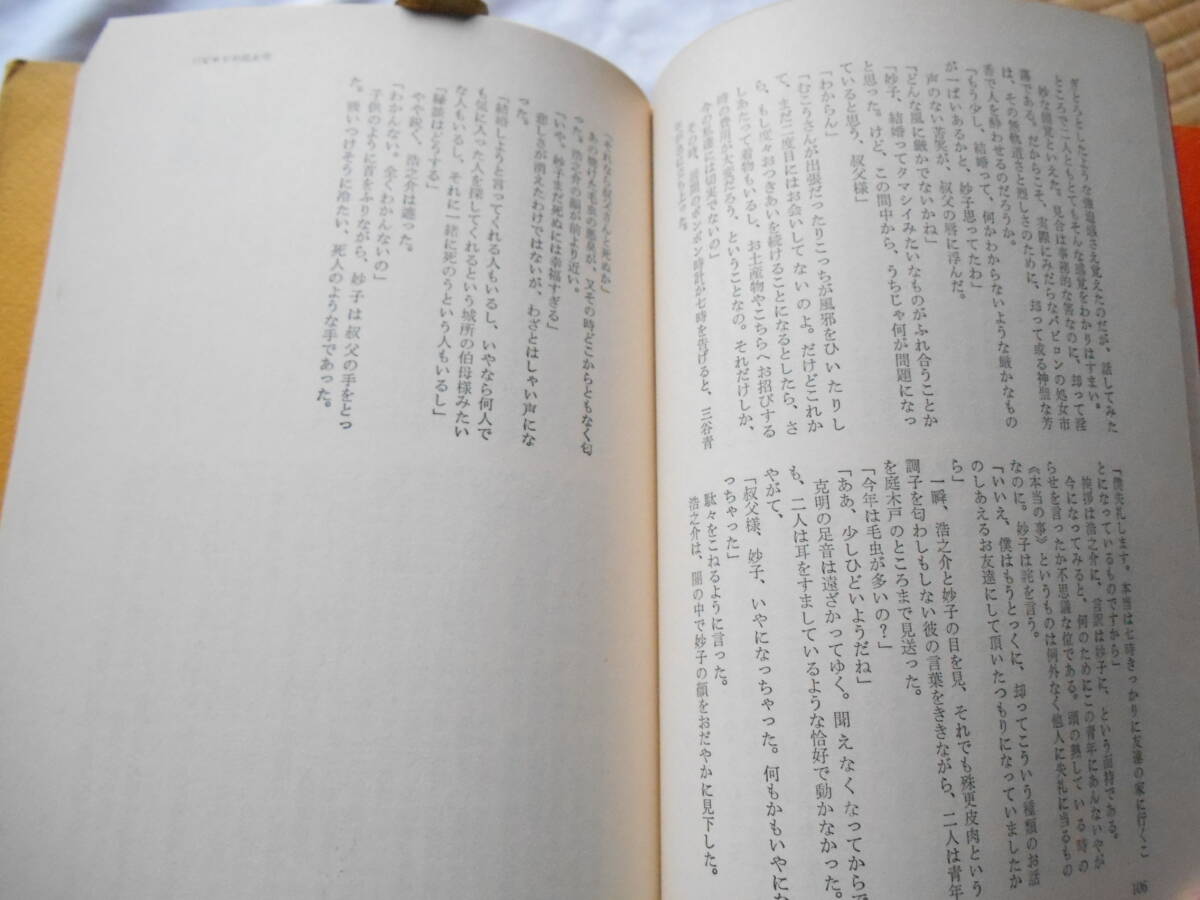 ぎょっとしたような倦退感さえ覚えたのだが、話してみた
ところで二人ともとてもそんな感覚をわかりはすまい。
妙な闘覚といえた。見合は事務的な筈なのに、却って淫
蕩である。だからこそ、実際にみだらなバビロンの処女市
は、その無軌道さと烈しさのために、却って或る神聖な芳
香で人を酔わせるのだろうか。
「もう少し、結婚って、何かわからないような厳かなもの
が一ぱいあるかと、妙子思ってたわ」
声のない苦笑が、叔父の唇に浮んだ。
「どんな風に厳かでないかね」
「妙子、結婚ってタマシイみたいなものがふれ合うことか
と思った。けど、この間中から、うちじゃ何が問題になっ
ていると思う、叔父様」
「わからん」
「むこうさんが出張だったりこっちが風邪をひいたりし
て、まだ二度目にはお会いしてないのよ。だけどこれか
ら、もし度々おつきあいを続けることになるとしたら、さ
しあたって着物もいるし、お土産物やこちらへお招びする
時の費用が大変だろう、ということなの。それだけしか、
今の私達には切実でないの」
その時、玄関のボンボン時計が七時を告げると、三谷青
年は立ち上った。
「僕失礼します。本当は七時きっかりに友達の家に行くこ
とになっているものですから」
挨拶は浩之介に、言訳は妙子に、という面持である。
今になってみると、何のためにこの青年にあんないやが
らせを言ったか不思議な位である。頭の熱している時の
《本当の事》というものは例外なく他人に失礼に当るもの
なのに。妙子は詫を言う。
「いいえ、僕はもうとっくに、却ってこういう種類のお話
のしあえるお友達にして頂いたつもりになっていましたか
ら」
一瞬、浩之介と妙子の目を見、それでも殊更皮肉という
調子を匂わしもしない彼の言葉をききながら、二人は青年
を庭木戸のところまで見送った。
「今年は毛虫が多いの？」
「ああ、少しひどいようだね」
克明の足音は遠ざかってゆく。聞えなくなってからで
も、二人は耳をすましているような恰好で動かなかった。
やがて、
「叔父様、妙子、いやになっちゃった。何もかもいやにな
っちゃった」
駄々をこねるように言った。
浩之介は、闇の中で妙子の顔をおだやかに見下した。
106
「それなら叔父さんと死ぬか」
あの焼けた毛虫の悪臭が、又その時どこからともなく匂
った。浩之介の顔が前より近い。
「いや、妙子まだ死ぬには幸福すぎる」
悲しさが消えたわけではないが、わざとはしゃい声にな
った。
「結婚しようと言ってくれる人もいるし、いやなら何人で
も気に入った人を探してくれるという城所の伯母様みたい
な人もいるし、それに一緒に死のうという人もいるし」
「縁談はどうする」
やや鋭く、浩之介は遮った。
「わかんない。全くわかんないの」
子供のように首をふりながら、妙子は叔父の手をとっ
た。吸いつけそうに冷たい、死人のような手であった。